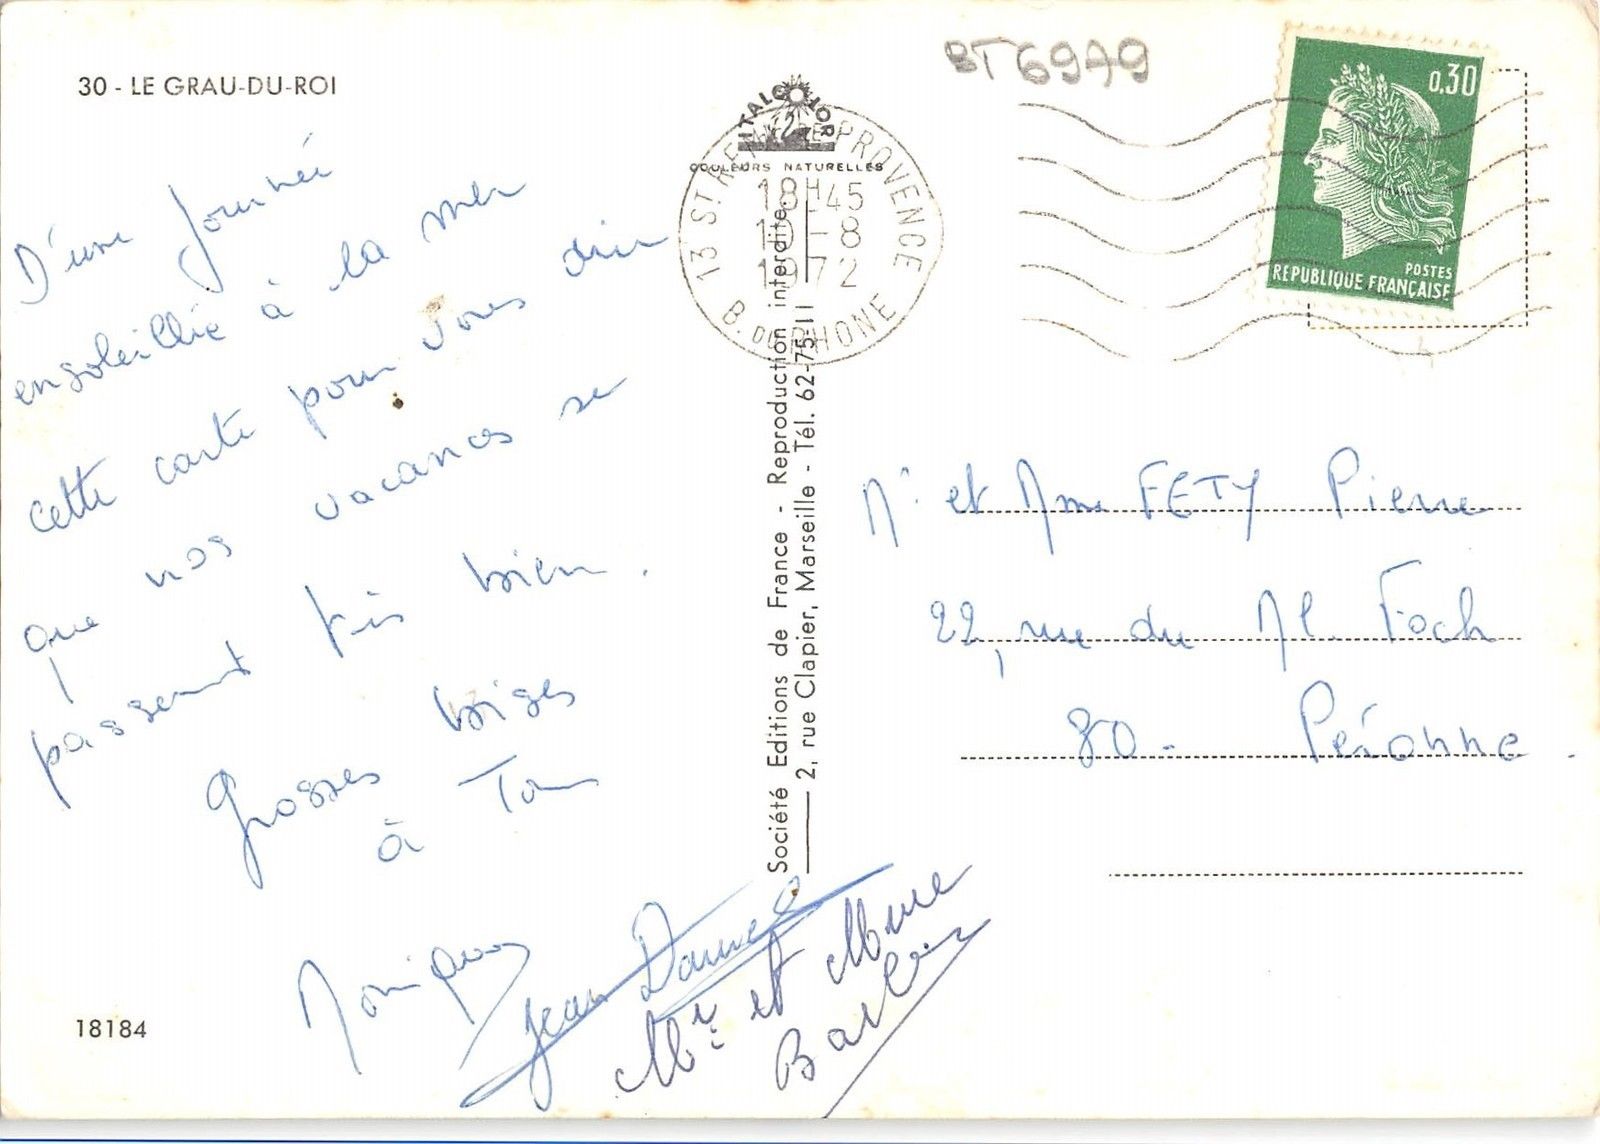 30 - LE GRAU-DU-ROI
D'une journée
ensoleillée à la mer
cette carte pour vous dire
que nos vacances se
passent très bien.
Grosses bises
à Tous
Jean Daniel
Mr et Mme
18184
BT6979
ITALCOLOR
COULEURS NATURELLES
13 ST REMY DE PROVENCE
18H45
10-8
1972
B. DU RHONE
Société Editions de France - Reproduction interdite.
2, rue Clapier, Marseille - Tél. 62-75-11
0,30
POSTES
REPUBLIQUE FRANÇAISE
Mr et Mme FETY Pierre
22, rue du Ml. Foch
80 - Péronne.